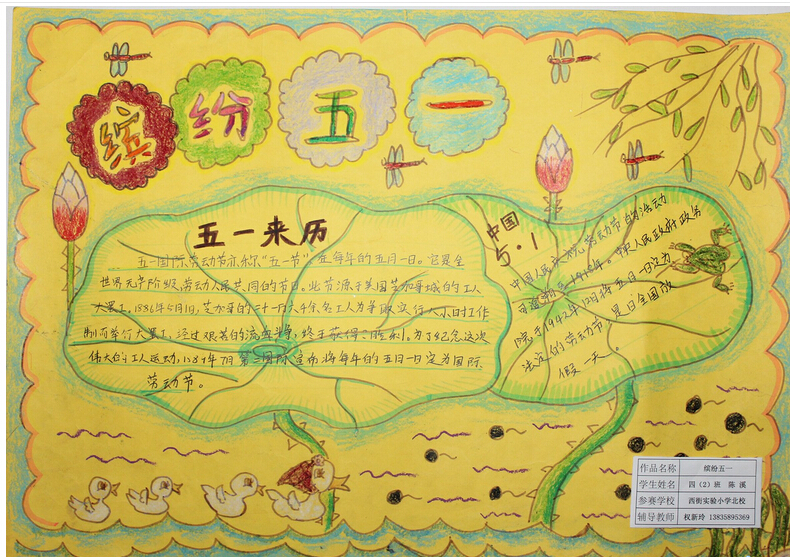 缤纷五一
五一来历
五一国际劳动节亦称“五一节”,在每年的五月一日。它是全
世界无产阶级、劳动人民共同的节日。此节源于美国芝加哥城的工人
大罢工,1886年5月1日,芝加哥的二十一万六千余名工人为争取实行八小时工作
制而举行大罢工,经过艰苦的流血斗争,终于获得了胜利。为了纪念这次
伟大的工人运动,1889年7月第二国际宣布将每年的五月一日定为国际
劳动节。
中国
5.1
中国人民庆祝劳动节的活动
可追溯至1918年。中央人民政府政务
院于1942年12月将五月一日定为
法定的劳动节 是日全国放
假一天。
作品名称 缤纷五一
学生姓名 四(2)班 陈溪
参赛学校 西街实验小学北校
辅导教师 权新玲 13835895369